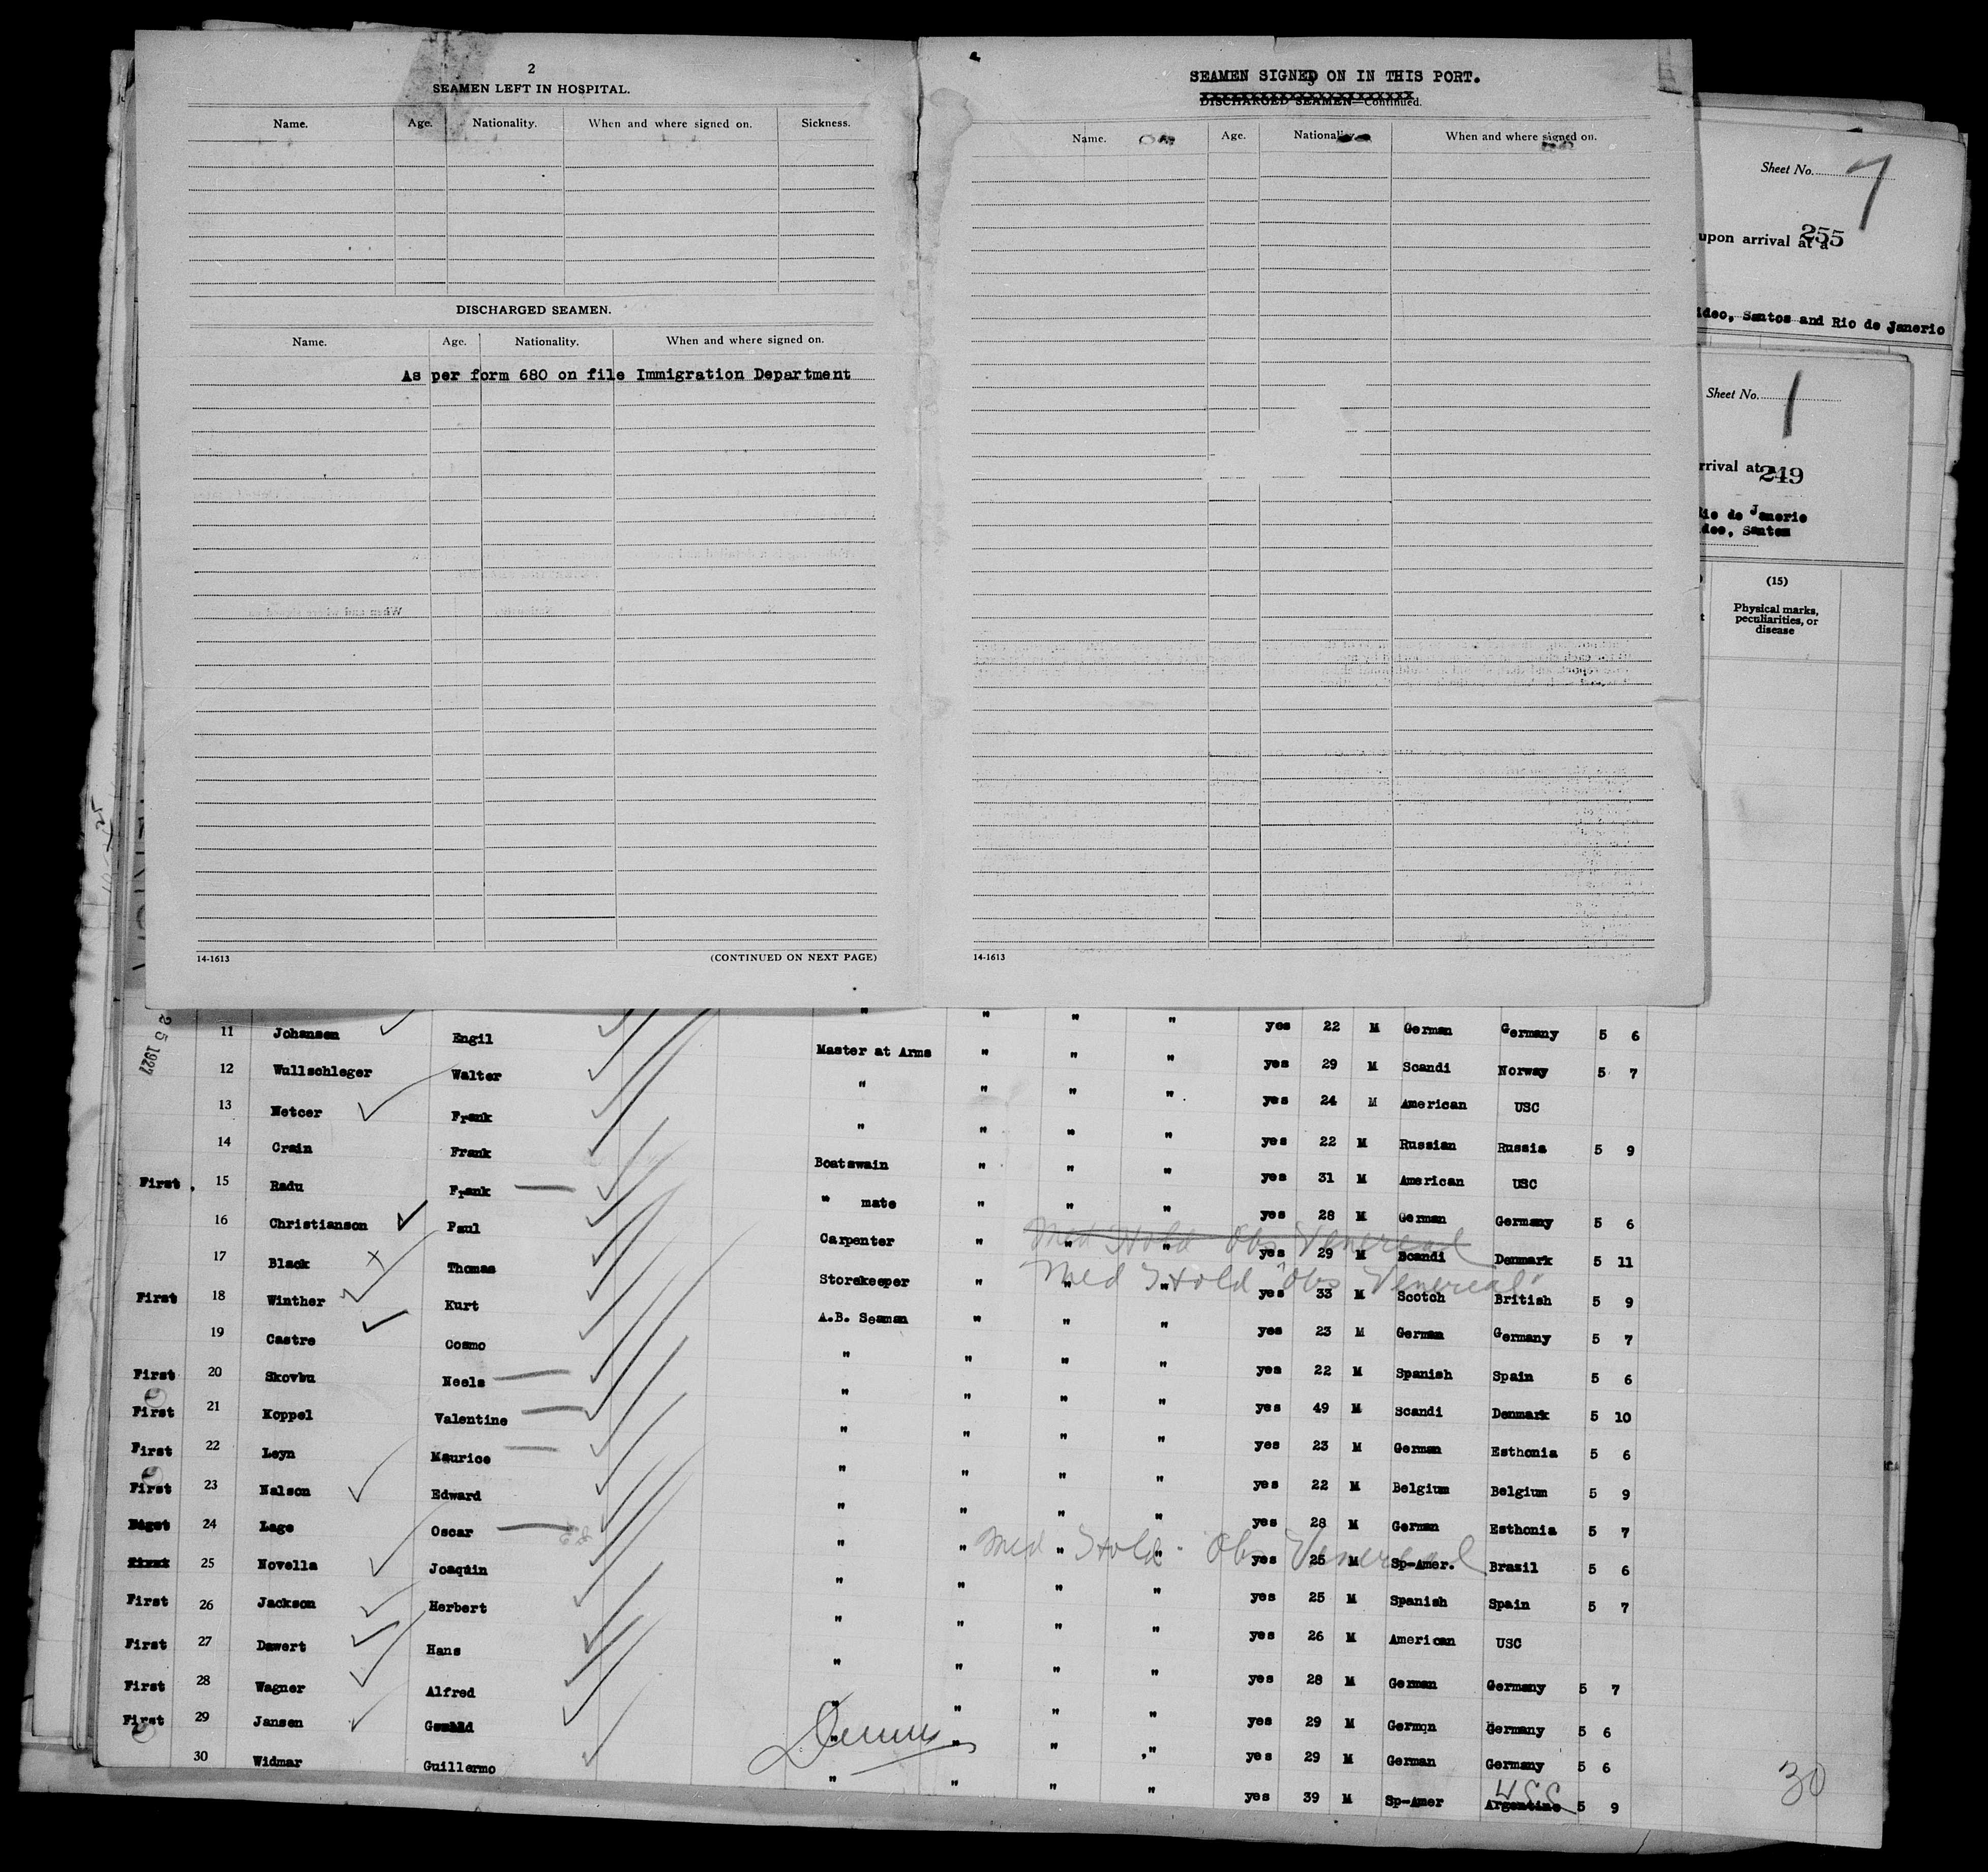 2
SEAMEN LEFT IN HOSPITAL.
Name. Age. Nationality. When and where signed on. Sickness.
DISCHARGED SEAMEN.
Name. Age. Nationality. When and where signed on.
As per form 680 on file Immigration Department
14-1613 (CONTINUED ON NEXT PAGE)
SEAMEN SIGNED ON IN THIS PORT.
DISCHARGED SEAMEN—Continued.
Name. Age. Nationality. When and where signed on.
14-1613
Sheet No. 7
upon arrival at a 255
ideo, Santos and Rio de Janerio
Sheet No. 1
rrival at a 249
Rio de Janerio
ideo, Santos
(15)
Physical marks, peculiarities, or disease
25 1927
" " " " yes 22 M German Germany 5 6
11 Johansen Engil Master at Arms " " " yes 29 M Scandi Norway 5 7
12 Wullschleger Walter " " " " yes 24 M American USC
13 Netcer Frank " " " " yes 22 M Russian Russia 5 9
14 Crain Frank Boatswain " " " yes 31 M American USC
First 15 Radu Frank " mate " " " yes 28 M German Germany 5 6
Med Hold Obs Venereal
16 Christianson Paul Carpenter " " " yes 29 M Scandi Denmark 5 11
Med Hold "Obs Venereal"
17 Black Thomas Storekeeper " " " yes 33 M Scotch British 5 9
First 18 Winther Kurt A.B. Seaman " " " yes 23 M German Germany 5 7
19 Castre Cosmo " " " " yes 22 M Spanish Spain 5 6
First 20 Skovbu Neels " " " " yes 49 M Scandi Denmark 5 10
First 21 Koppel Valentine " " " " yes 23 M German Esthonia 5 6
First 22 Leyn Maurice " " " " yes 22 M Belgium Belgium 5 9
First 23 Nalson Edward " " " " yes 28 M German Esthonia 5 7
Med Hold - Obs Venereal
24 Lage Oscar " " " " yes 25 M Sp-Amer. Brazil 5 6
First 25 Novella Joaquin " " " " yes 25 M Spanish Spain 5 7
First 26 Jackson Herbert " " " " yes 26 M American USC
First 27 Dewert Hans " " " " yes 28 M German Germany 5 7
First 28 Wagner Alfred " " " " yes 29 M German Germany 5 6
First 29 Jansen " " " " yes 29 M German Germany 5 6
30 Widmar Guillermo " " " " yes 39 M Sp-Amer Argentine 5 9
30